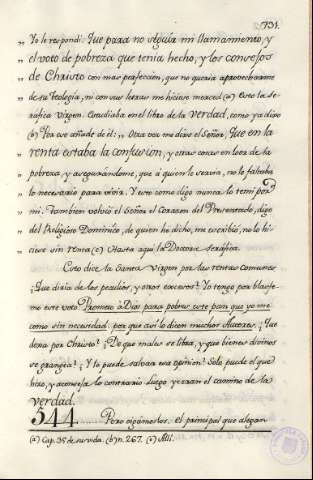 731.
„ Yo le respondi: Que para no seguir mi llamamiento, y
„ el voto de pobreza que tenia hecho, y los consejos
„ de Christo con mas perfeccion, que no queria aprovecharme
„ de su Teologia, ni con sus letras me hiciese merced (a) Esto la Se-
rafica Virgen. Estudiaba en el libro de la verdad, como ya dixo
(b) Por eso añade de él: „ Otra vez me dixo el Señor, Que en la
„ renta estaba la confusion, y otras cosas en loor de la
„ pobreza, y asegurandome, que a quien le servia, no le faltaba
„ lo necesario para vivir. Y esto como digo nunca lo temi por
„ mi. Tambien volvió el Señor el corazon del Presentado, digo
„ del Religioso Dominico, de quien he dicho, me escribió, no lo hi-
„ ciese sin renta (c) Hasta aqui la Doctora Serafica.
Esto dice la Santa Virgen por las rentas comunes
¿Que diria de los peculios, y otros excesos? Yo tengo por blasfe-
me este voto Prometo à Dios para pobres este pan que yo me
como sin necesidad, por que asi lo dicen muchos Autores. ¿Que
dexa por Christo? ¿De que males se libra, y que bienes divinos
se grangea? ¿Y le puede salvar esa opinion? Solo puede el que
hizo, y aconseja lo contrario luego yerran el camino de la
verdad.
544 Pero sigamoslos. el principal que alegan
(a) Cap. 35 de su vida. (b) n. 267. (c) Alli.